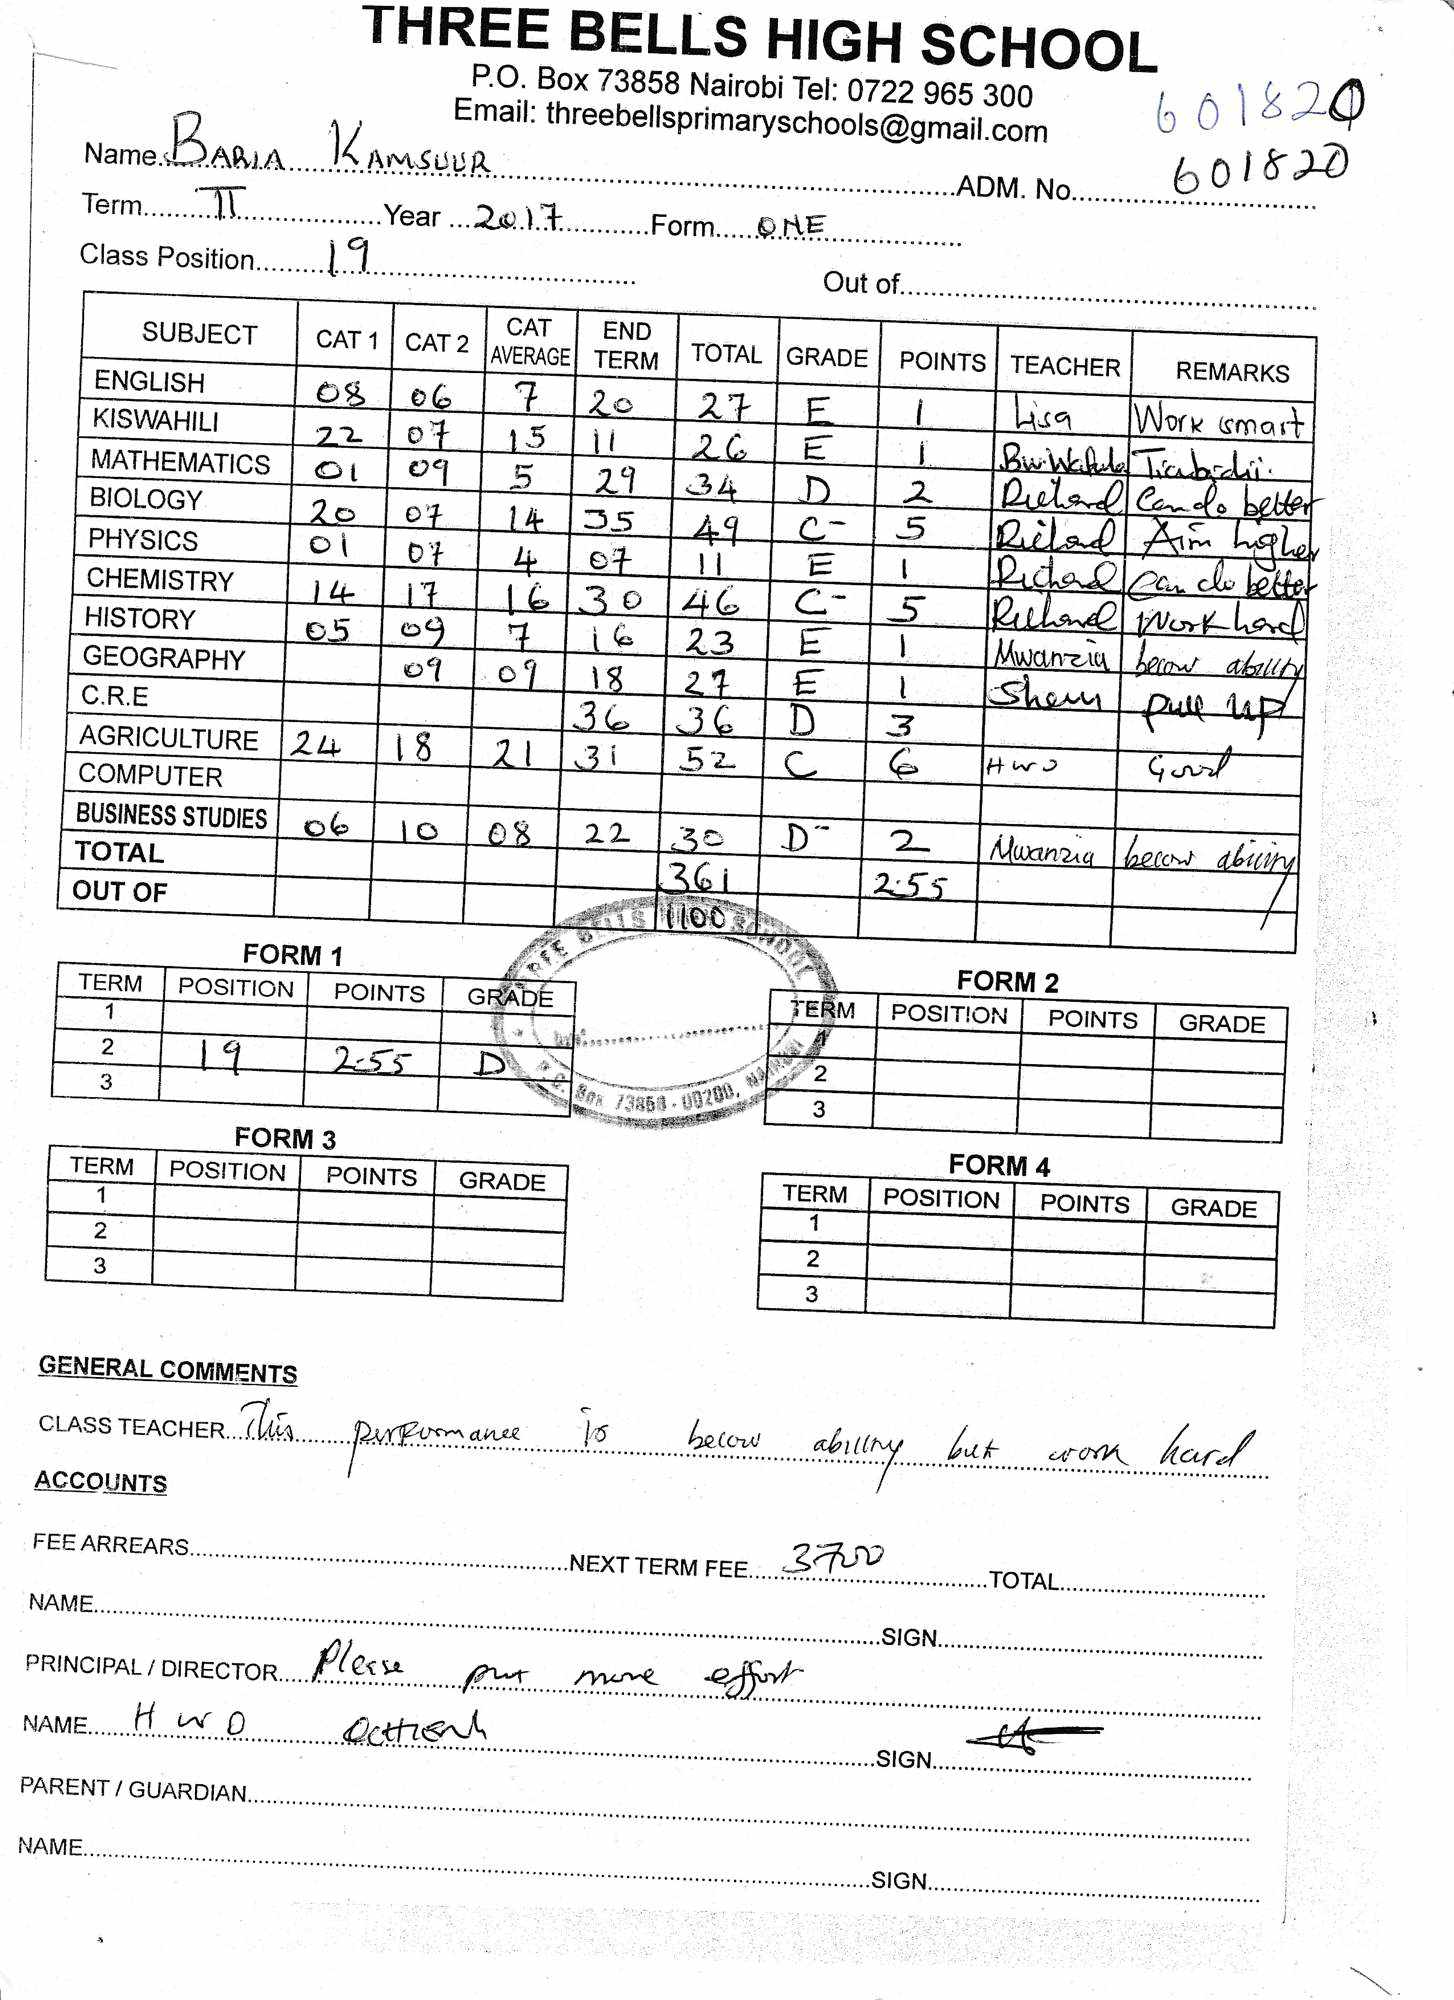 THREE BELLS HIGH SCHOOL
P.O. Box 73858 Nairobi Tel: 0722 965 300
Email: threebellsprimaryschools@gmail.com
601820
Name BARIA KAMSUUR ADM. No. 601820
Term II Year 2017 Form ONE
Class Position 19 Out of
SUBJECT CAT 1 CAT 2 CAT AVERAGE END TERM TOTAL GRADE POINTS TEACHER REMARKS
ENGLISH 08 06 7 20 27 E 1 Lisa Work smart
KISWAHILI 22 07 15 11 26 E 1 Bw. Wafula Tia bidii.
MATHEMATICS 01 09 5 29 34 D 2 Richard Can do better
BIOLOGY 20 07 14 35 49 C- 5 Richard Aim higher
PHYSICS 01 07 4 07 11 E 1 Richard Can do better
CHEMISTRY 14 17 16 30 46 C- 5 Richard Work hard
HISTORY 05 09 7 16 23 E 1 Mwanzia below ability
GEOGRAPHY 09 09 18 27 E 1 Shem pull up
C.R.E 36 36 D 3
AGRICULTURE 24 18 21 31 52 C 6 HWO Good
COMPUTER
BUSINESS STUDIES 06 10 08 22 30 D- 2 Mwanzia below ability
TOTAL 361 2.55
OUT OF 1100
THREE BELLS HIGH SCHOOL
P.O. Box 73858 - 00200, NAIROBI
FORM 1
TERM POSITION POINTS GRADE
1
2 19 2.55 D
3
FORM 2
TERM POSITION POINTS GRADE
1
2
3
FORM 3
TERM POSITION POINTS GRADE
1
2
3
FORM 4
TERM POSITION POINTS GRADE
1
2
3
GENERAL COMMENTS
CLASS TEACHER This performance is below ability but work hard
ACCOUNTS
FEE ARREARS NEXT TERM FEE 3700 TOTAL
NAME SIGN
PRINCIPAL / DIRECTOR Please put more effort
NAME HWO SIGN
PARENT / GUARDIAN
NAME SIGN